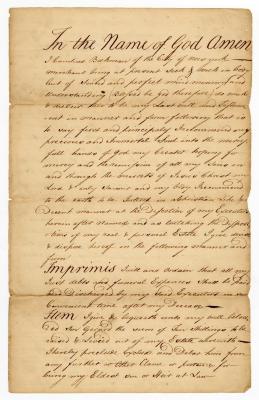 In the Name of God Amen
I Gerardus Beekman of the City of New york
merchant being at present Sick & weak in body
but of Sound and perfect mind memory and
Understanding (Blessed be God therefore) do make
& declare this to be my last will and Testam
ent in manner and form following that is
to say first and principally I recommend my
precious and Immortal Soul into the merci
full hands of God my Creator hoping for
mercy and the remission of all my Sins in
and through the merits of Jesus Christ my
Lord & only Saviour and my body I recommend
to the earth to be Interd in a Christian like &
Decent manner at the Discretion of my Executors
herein after named and as touching the disposi
tions of my real & personal Estate I give
& dispose thereof in the following manner and
form
Imprimis I will and Ordain that all my
Just debts and funeral Expences Shall be paid
and Discharged by my Executors in
Convenient time after my Decease
Item I give & bequeath unto my well belov
ed Son the sum of Ten Shillings to be
raised & Levied out of my Estate wherewith
I hereby preclude Exclude and Debar him from
any further or other Claim or pretence for
being my Eldest son or Heir at Law